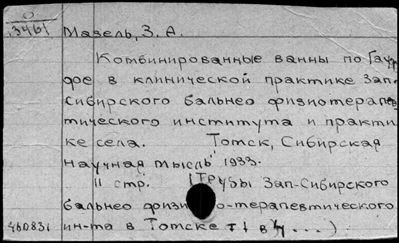 0
3461
Мазель, З. А.
Комбинированные ванны по Гау
фе в клинической практике Зап.
Сибирского бальнео физиотерапев
тического института и практи
ке села. Томск, Сибирская
научная мысль 1933.
11 стр. (Трубы Зап-Сибирского
бальнео физио-терапевтического
460831 ин-та в Томске т 1 в ...)